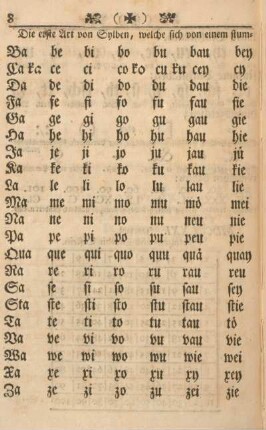 8 ( ✠ )
Die erste Art von Sylben, welche sich von einem stum-
Ba be bi bo bu bau bey
Ca ka ce ci co ko cu ku cey cy
Da de di do du dau die
Fa fe fi fo fu fau fie
Ga ge gi go gu gau gie
Ha he hi ho hu hau hie
Ja je ji jo ju jau jü
Ka ke ki ko ku kau kie
La le li lo lu lau lie
Ma me mi mo mu mö mei
Na ne ni no nu neu nie
Pa pe pi po pu peu pie
Qua que qui quo quu quä quay
Ra re ri ro ru rau reu
Sa se si so su sau sey
Sta ste sti sto stu stau stie
Ta te ti to tu tau tö
Va ve vi vo vu vau vie
Wa we wi wo wu wie wei
Xa xe xi xo xu xy xey
Za ze zi zo zu zei zie